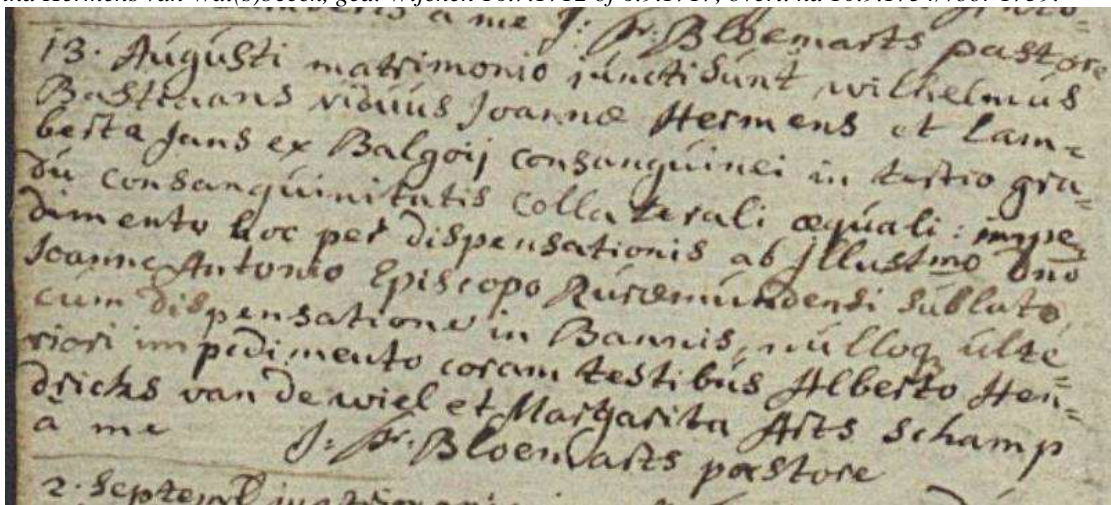 a me J: Fr: Bloemarts pastore
13. Augusti matrimonio juncti sunt wilhelmus
Bastiaans viduus Joannæ Hermens et Lam=
berta Jans ex Balgoij consanguinei in tertio gra=
du consanguinitatis collaterali æquali: impe=
dimento hoc per dispensationis ab Jllustmo Dno
Joanne Antonio Episcopo Ruræmundensi sublato,
cum dispensatione in Bannis, nulloq ulte=
riori impedimento coram testibus Alberto Hen=
dricks van de wiel et Margarita Arts schamp
à me J: Fr: Bloemarts pastore
2. Septemb